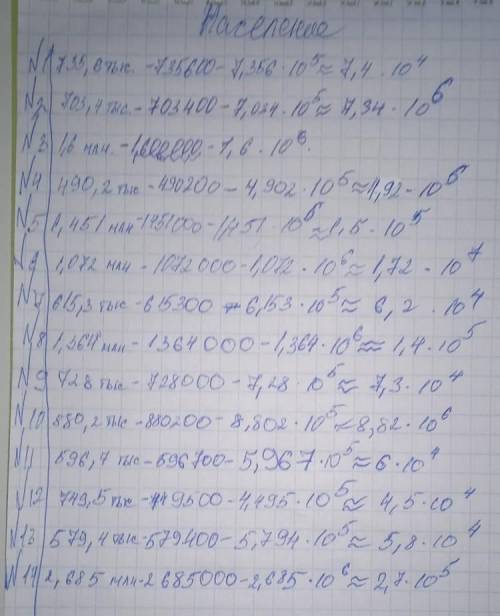 Население
N1 735,6 тыс. - 735600 - 7,356 · 10⁵ ≈ 7,4 · 10⁴
N2 703,4 тыс. - 703400 - 7,034 · 10⁵ ≈ 7,34 · 10⁶
N3 1,6 млн. - 1,600000 - 1,6 · 10⁶.
N4 490,2 тыс - 490200 - 4,902 · 10⁵ ≈ 4,92 · 10⁶
N5 1,451 млн - 1451000 - 1,451 · 10⁶ ≈ 1,5 · 10⁵
N6 1,072 млн - 1072000 - 1,072 · 10⁶ ≈ 1,72 · 10⁷
N7 615,3 тыс - 615300 - 6,153 · 10⁵ ≈ 6,2 · 10⁴
N8 1,364 млн - 1364000 - 1,364 · 10⁶ ≈ 1,4 · 10⁵
N9 728 тыс - 728000 - 7,28 · 10⁵ ≈ 7,3 · 10⁴
N10 880,2 тыс - 880200 - 8,802 · 10⁵ ≈ 8,82 · 10⁶
N11 596,7 тыс - 596700 - 5,967 · 10⁵ ≈ 6 · 10⁴
N12 749,5 тыс - 449500 - 4,495 · 10⁵ ≈ 4,5 · 10⁴
N13 579,4 тыс - 579400 - 5,794 · 10⁵ ≈ 5,8 · 10⁴
N14 2,685 млн - 2685000 - 2,685 · 10⁶ ≈ 2,7 · 10⁵